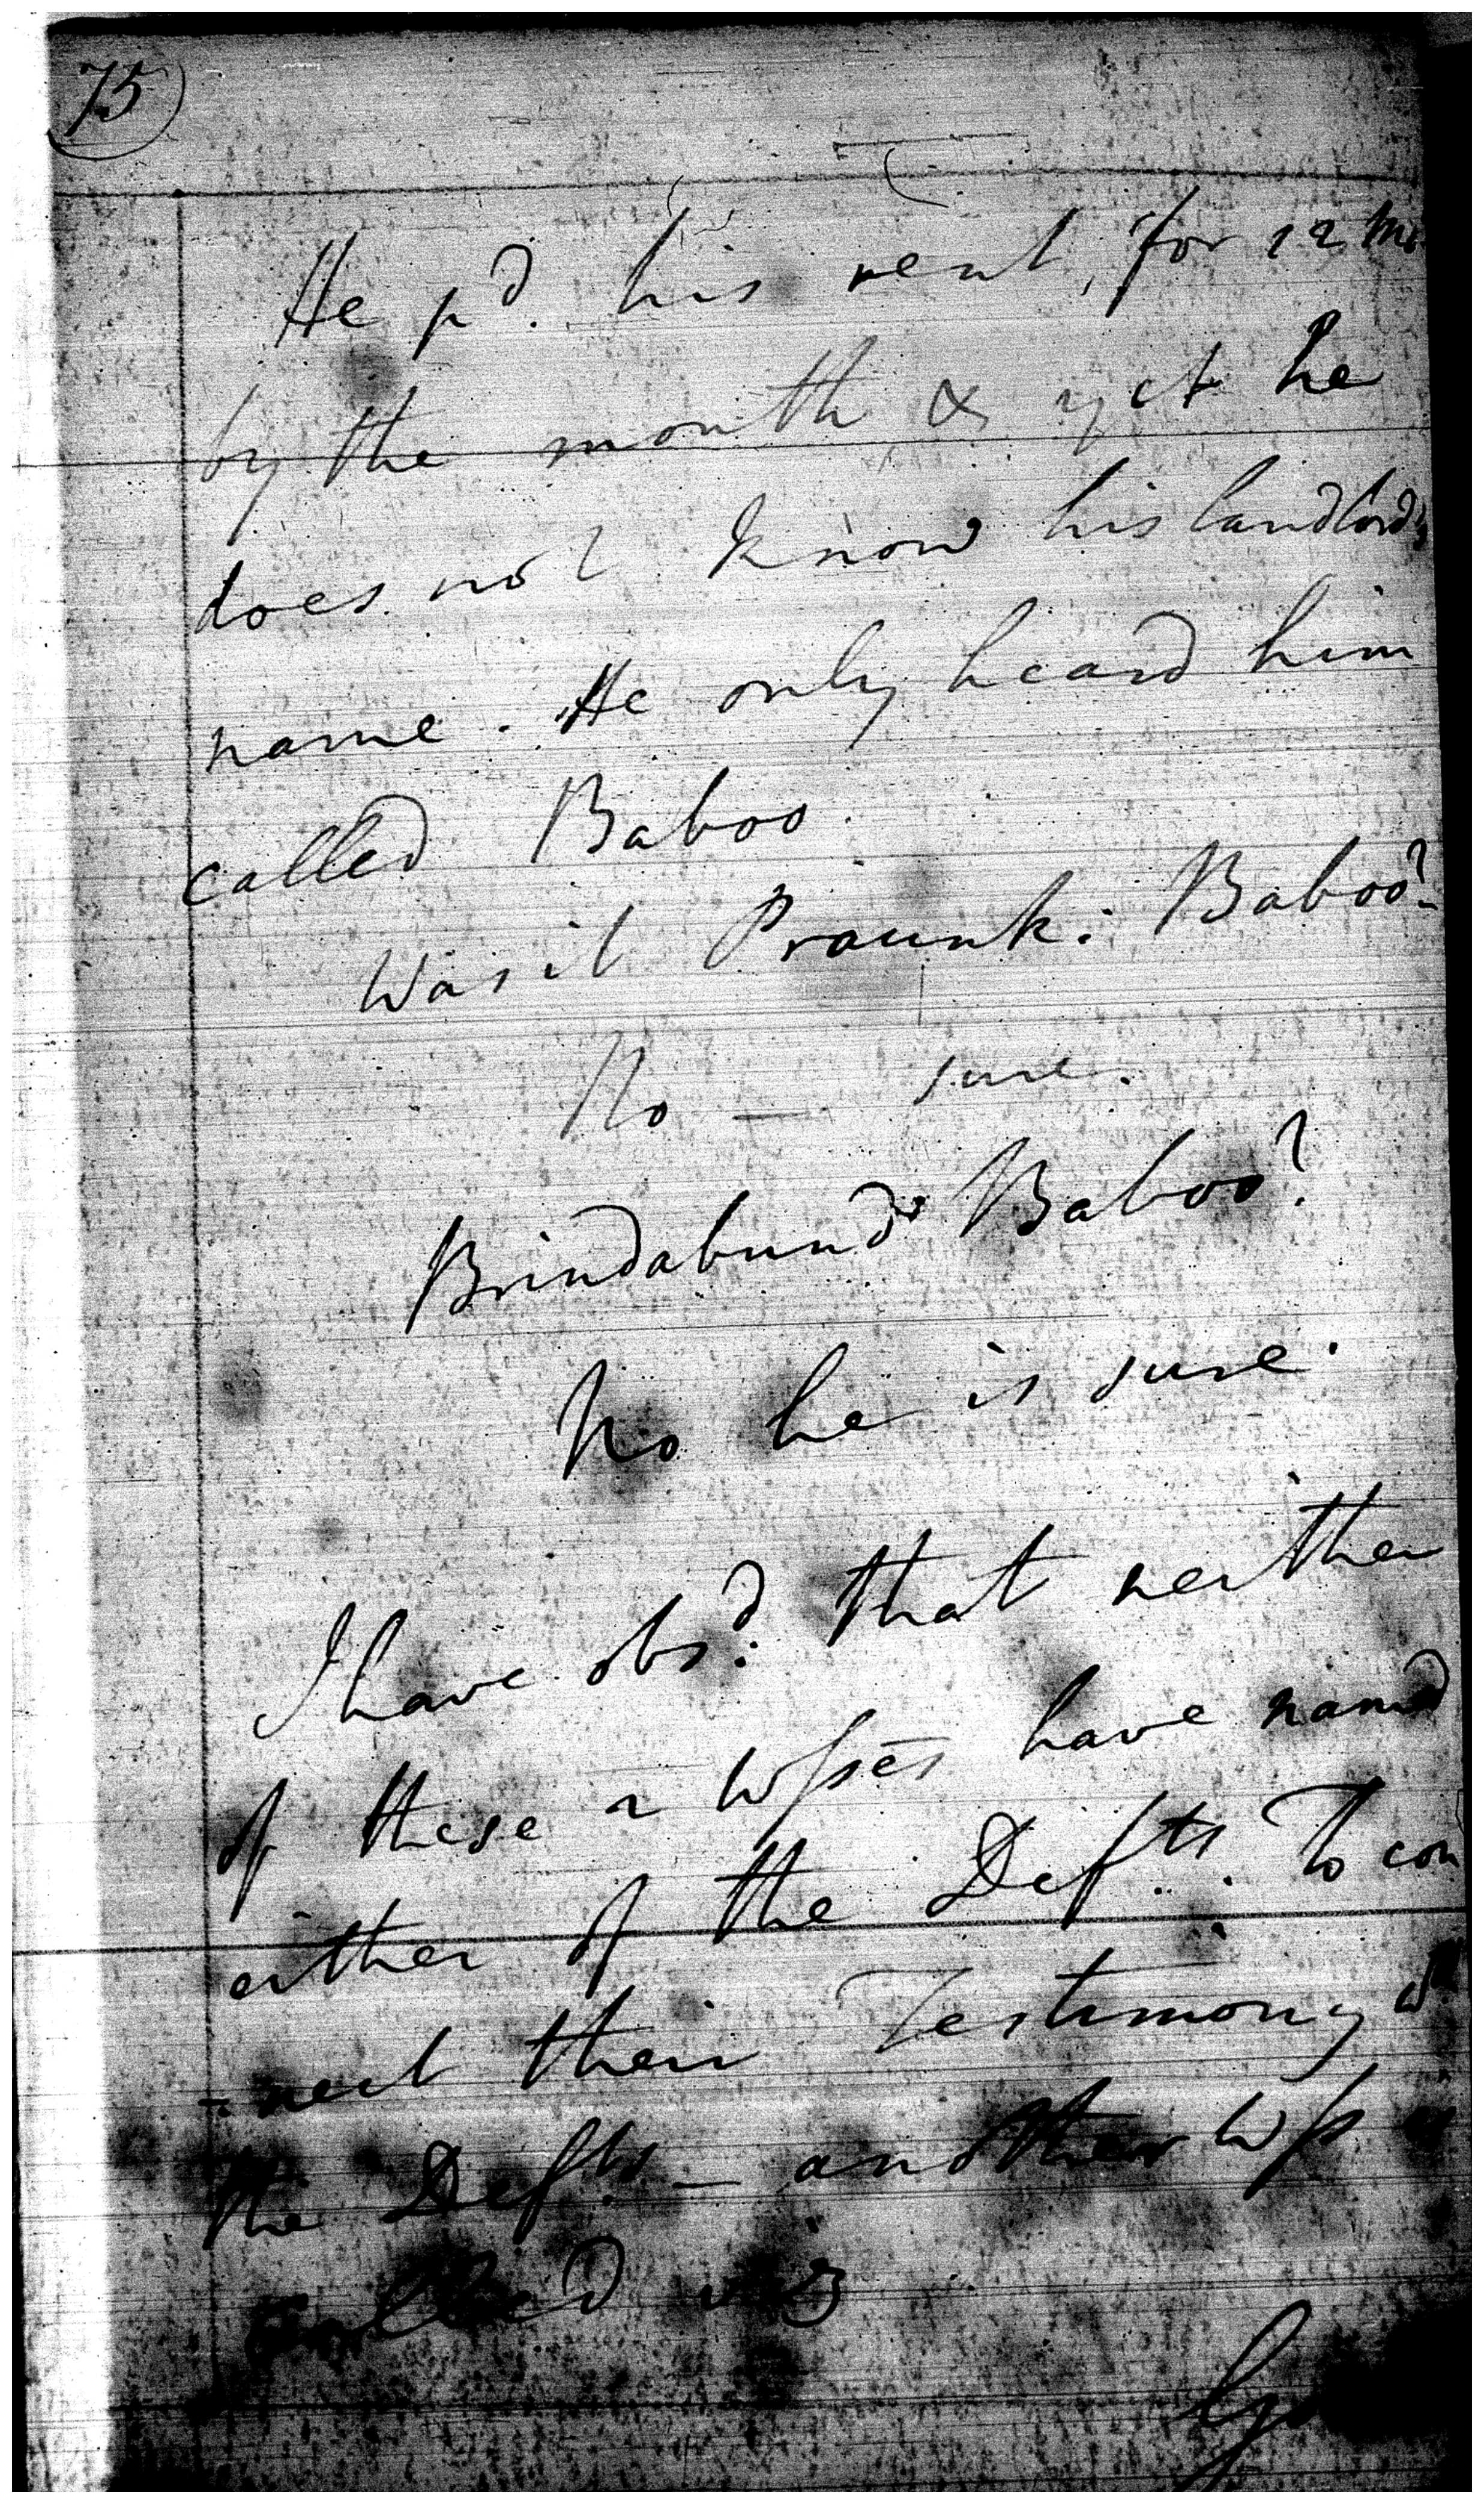 75
He pd. his rent, for 12 mo
by the month & yet he
does not know his landlord's
name. He only heard him
called Baboo.
Was it Praunk: Baboo?
No — sure.
Brindabund Baboo?
No he is sure.
I have obsd: that neither
of these 2 Wsses have named
either of the Defts. To con
-nect their Testimony
the Defts. — another Wss is
called viz